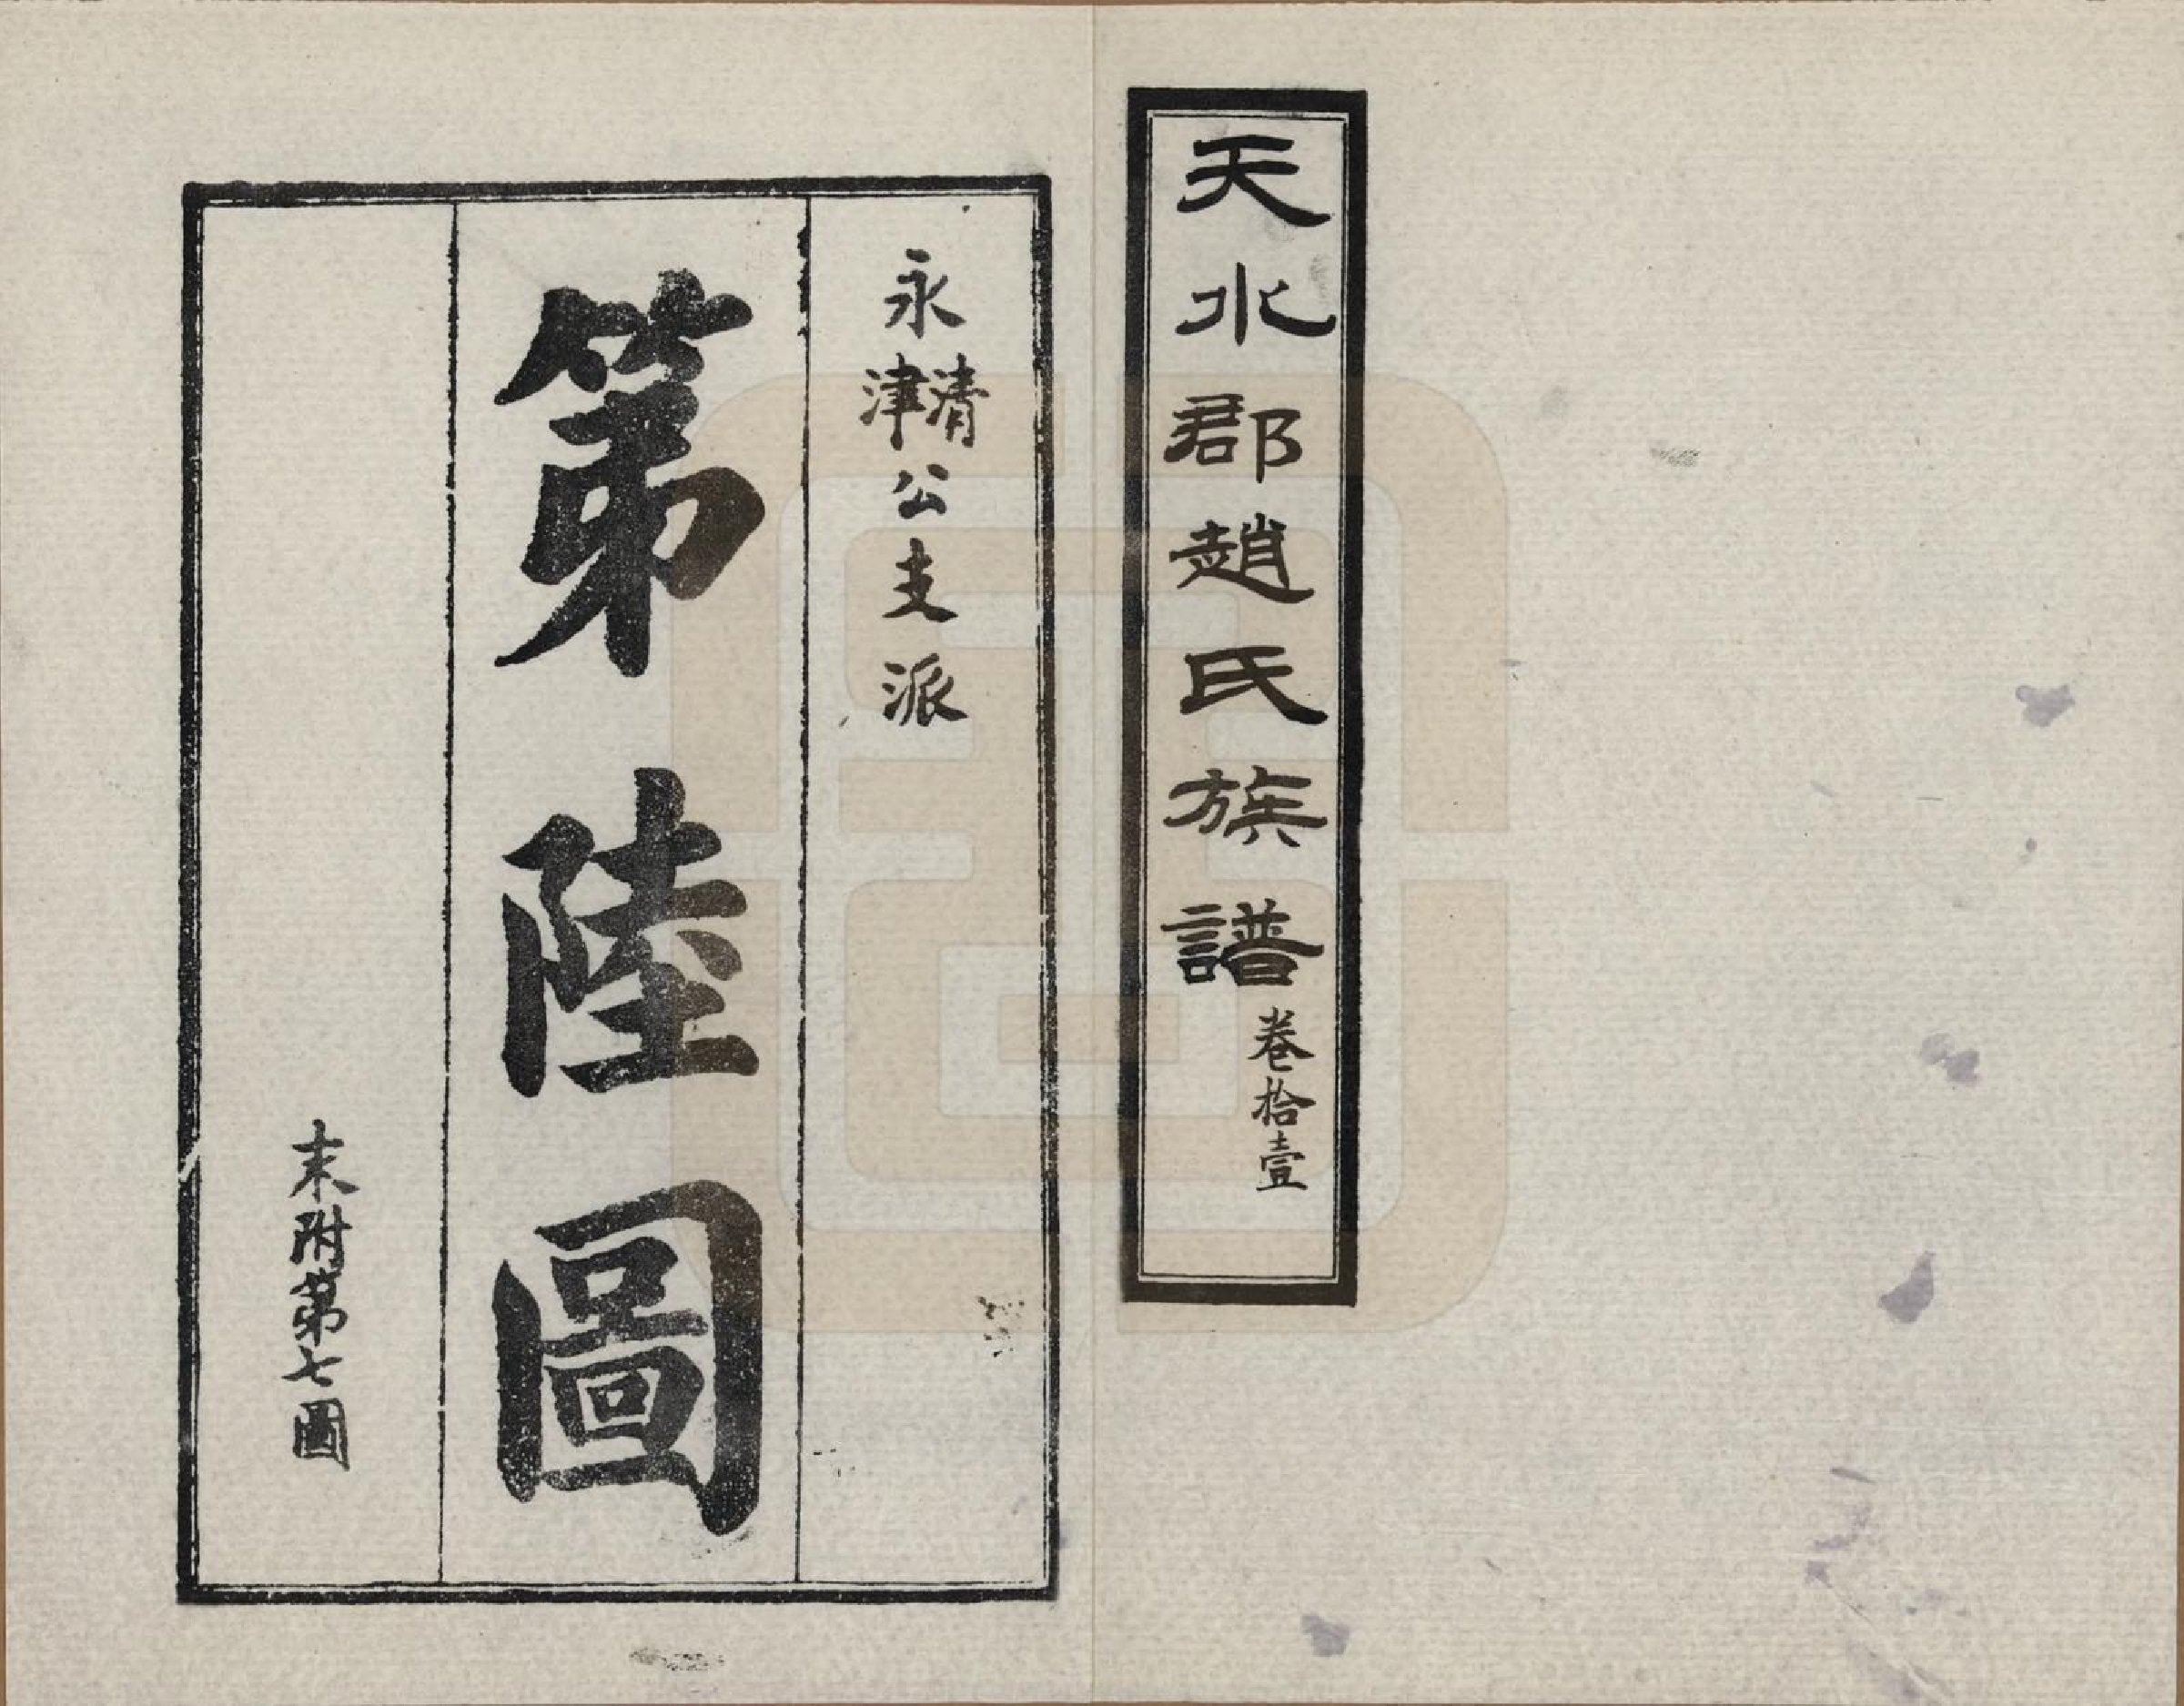 天水郡趙氏族譜 卷拾壹
永清津公支派
第陸圖
末附第七圖